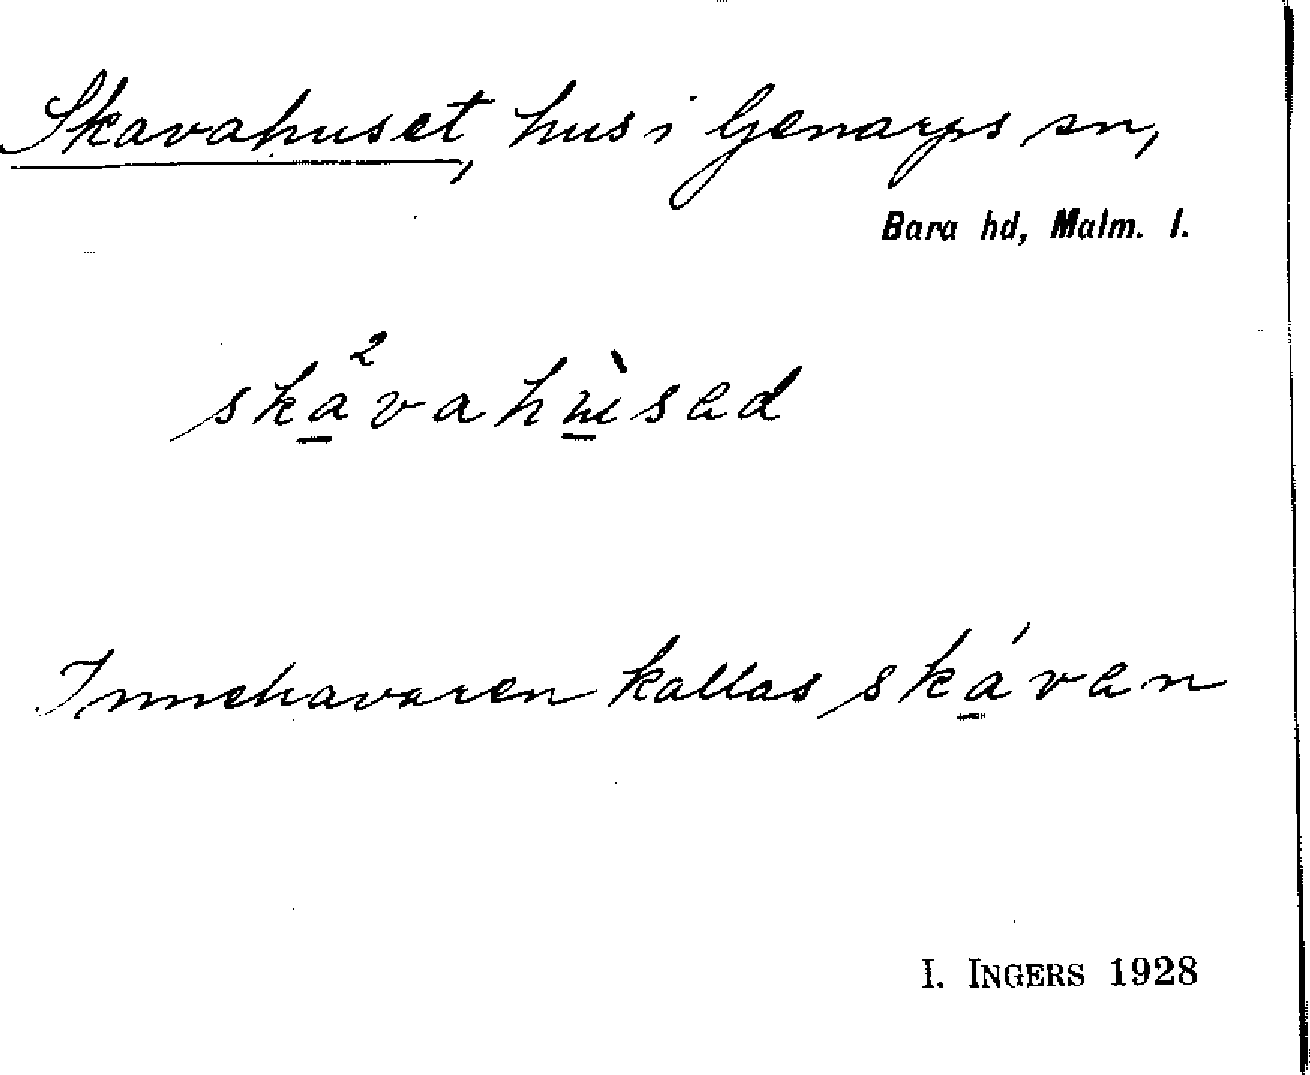 Skavahuset, hus i Genarps sn,
Bara hd, Malm. l.
ska²vahùsad
Innehavaren kallas skávan
I. INGERS 1928